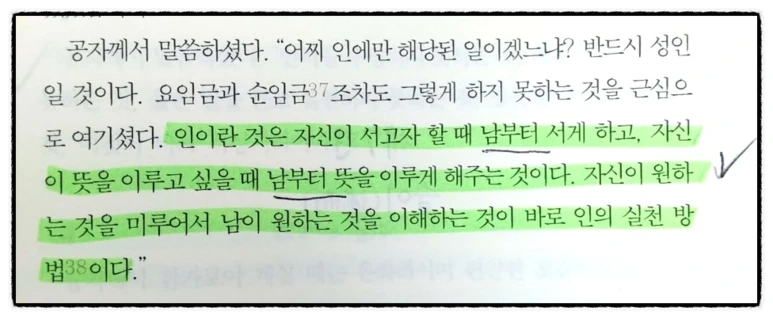 공자께서 말씀하셨다. “어찌 인에만 해당된 일이겠느냐? 반드시 성인
일 것이다. 요임금과 순임금37조차도 그렇게 하지 못하는 것을 근심으
로 여기셨다. 인이란 것은 자신이 서고자 할 때 남부터 서게 하고, 자신
이 뜻을 이루고 싶을 때 남부터 뜻을 이루게 해주는 것이다. 자신이 원하
는 것을 미루어서 남이 원하는 것을 이해하는 것이 바로 인의 실천 방
법38이다.”